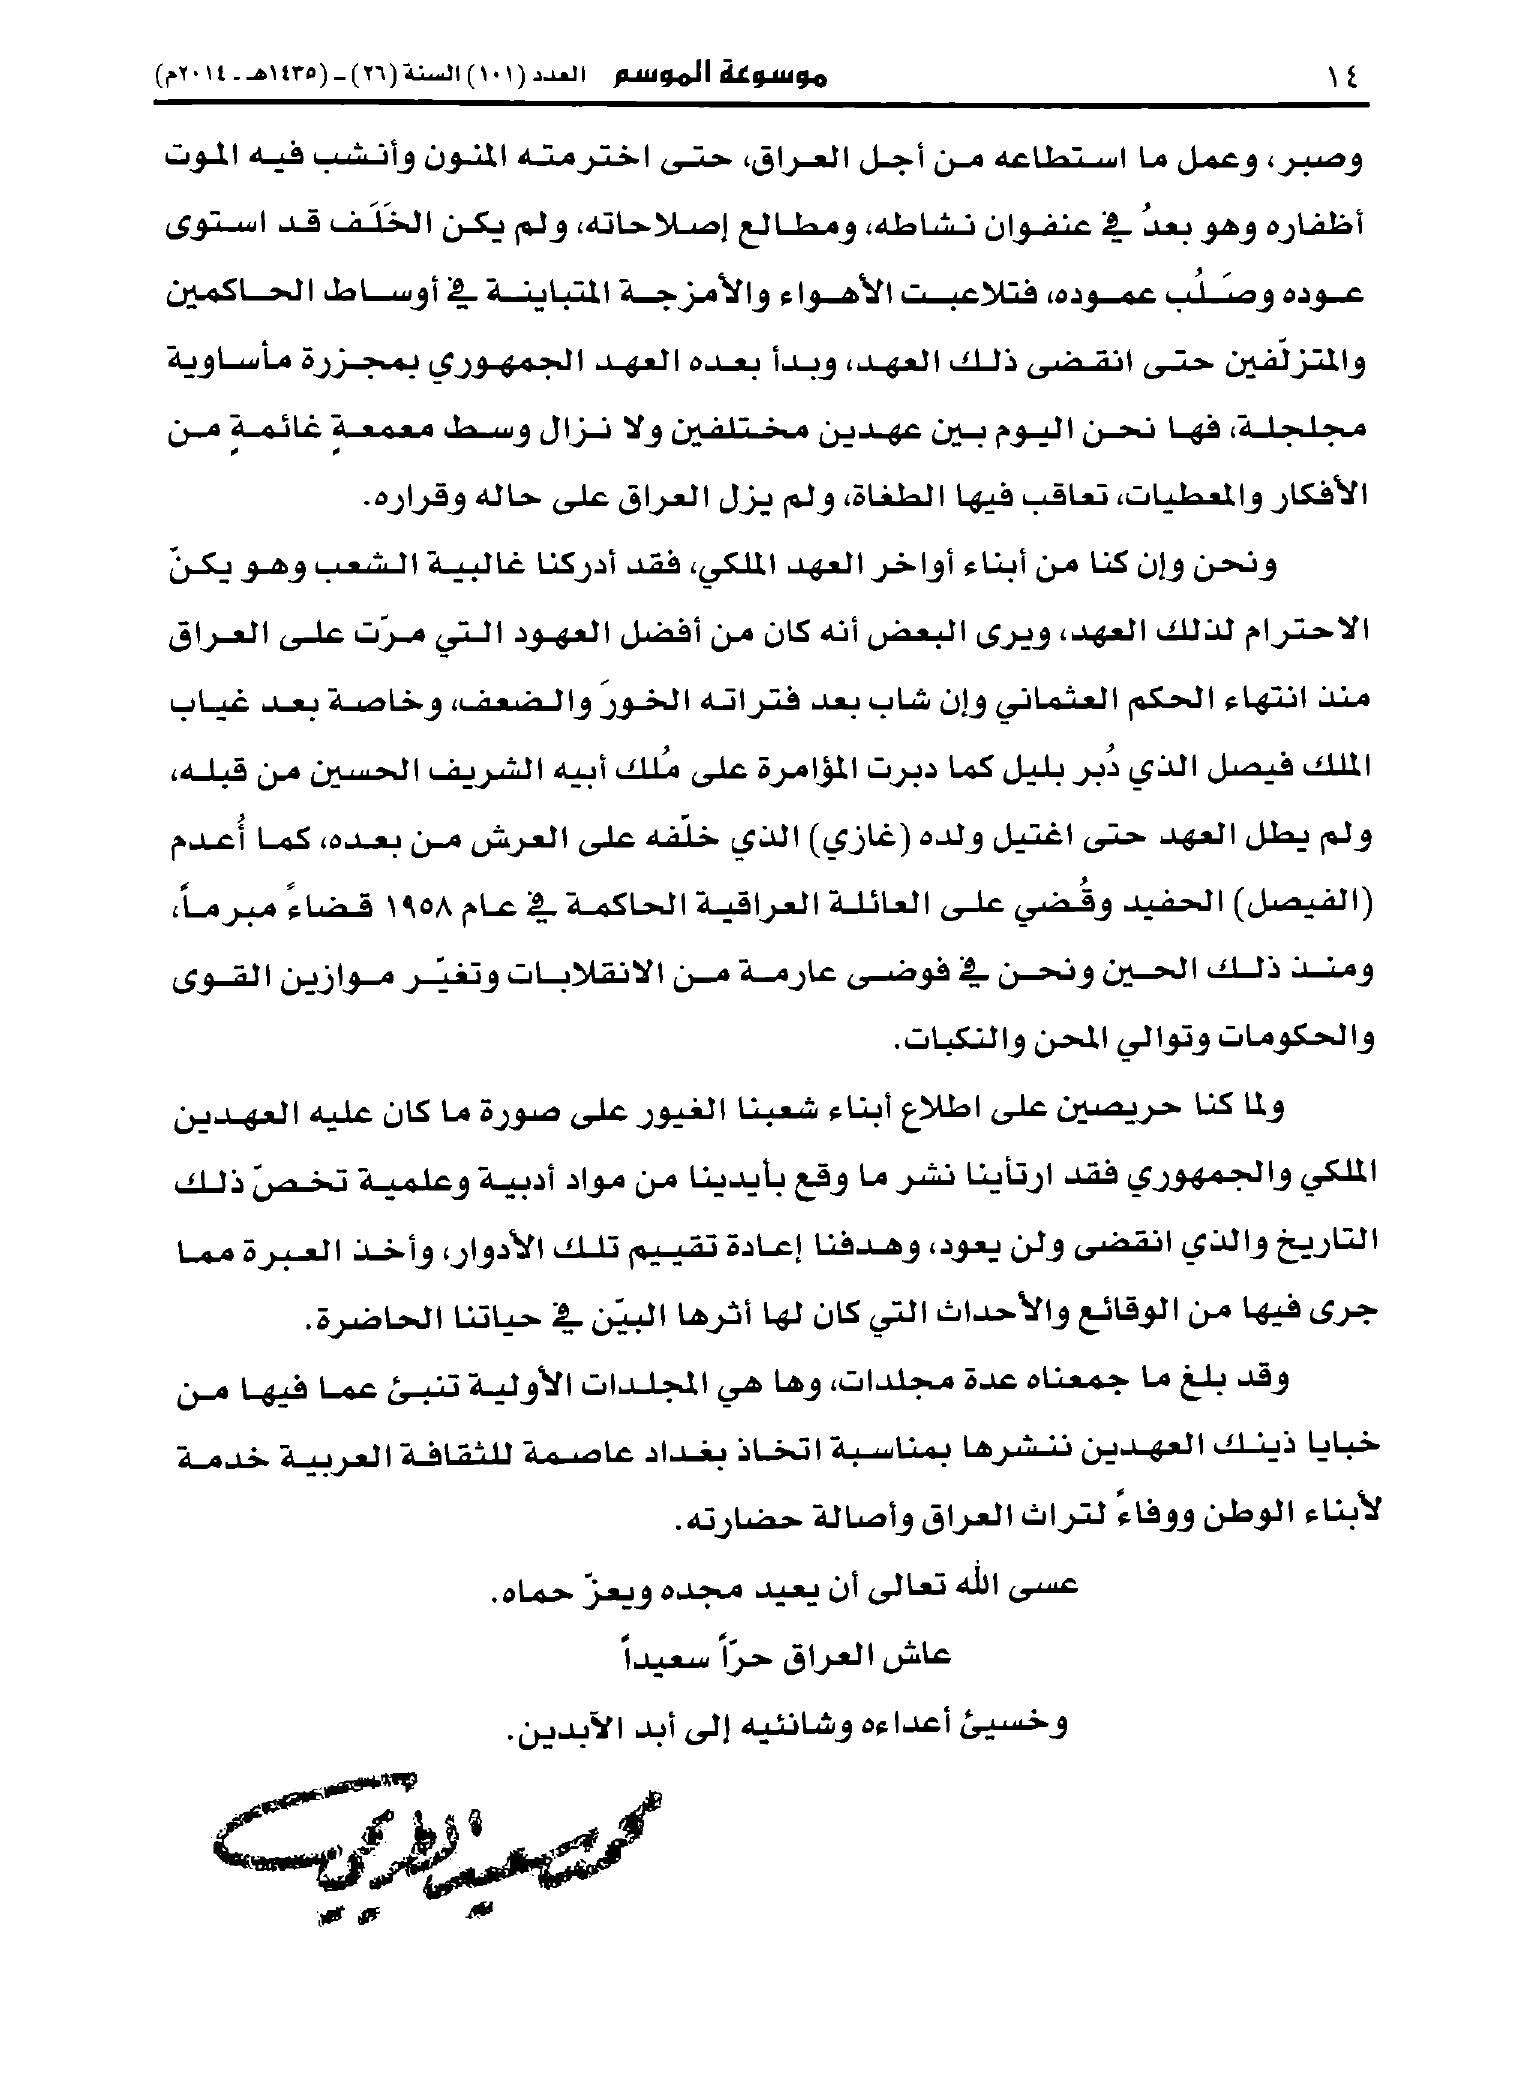 ١٤ موسوعة الموسم العدد (١٠١) السنة (٢٦) - (١٤٣٥هـ - ٢٠١٤م)
وصبر، وعمل ما استطاعه من أجل العراق، حتى اخترمته المنون وأنشب فيه الموت
أظفاره وهو بعدُ في عنفوان نشاطه، ومطالع إصلاحاته، ولم يكن الخَلَف قد استوى
عوده وصَلُب عموده، فتلاعبت الأهواء والأمزجة المتباينة في أوساط الحاكمين
والمتزلّفين حتى انقضى ذلك العهد، وبدأ بعده العهد الجمهوري بمجزرة مأساوية
مجلجلة، فها نحن اليوم بين عهدين مختلفين ولا نزال وسط معمعةٍ غائمةٍ من
الأفكار والمعطيات، تعاقب فيها الطغاة، ولم يزل العراق على حاله وقراره.
ونحن وإن كنا من أبناء أواخر العهد الملكي، فقد أدركنا غالبية الشعب وهو يكنّ
الاحترام لذلك العهد، ويرى البعض أنه كان من أفضل العهود التي مرّت على العراق
منذ انتهاء الحكم العثماني وإن شاب بعد فتراته الخورَ والضعف، وخاصة بعد غياب
الملك فيصل الذي دُبر بليل كما دبرت المؤامرة على مُلك أبيه الشريف الحسين من قبله،
ولم يطل العهد حتى اغتيل ولده (غازي) الذي خلّفه على العرش من بعده، كما أُعدم
(الفيصل) الحفيد وقُضي على العائلة العراقية الحاكمة في عام ١٩٥٨ قضاءً مبرماً،
ومنذ ذلك الحين ونحن في فوضى عارمة من الانقلابات وتغيّر موازين القوى
والحكومات وتوالي المحن والنكبات.
ولما كنا حريصين على اطلاع أبناء شعبنا الغيور على صورة ما كان عليه العهدين
الملكي والجمهوري فقد ارتأينا نشر ما وقع بأيدينا من مواد أدبية وعلمية تخصّ ذلك
التاريخ والذي انقضى ولن يعود، وهدفنا إعادة تقييم تلك الأدوار، وأخذ العبرة مما
جرى فيها من الوقائع والأحداث التي كان لها أثرها البيّن في حياتنا الحاضرة.
وقد بلغ ما جمعناه عدة مجلدات، وها هي المجلدات الأولية تنبئ عما فيها من
خبايا ذينك العهدين ننشرها بمناسبة اتخاذ بغداد عاصمة للثقافة العربية خدمة
لأبناء الوطن ووفاءً لتراث العراق وأصالة حضارته.
عسى الله تعالى أن يعيد مجده ويعزّ حماه.
عاش العراق حرّاً سعيداً
وخسيئ أعداءه وشانئيه إلى أبد الآبدين.